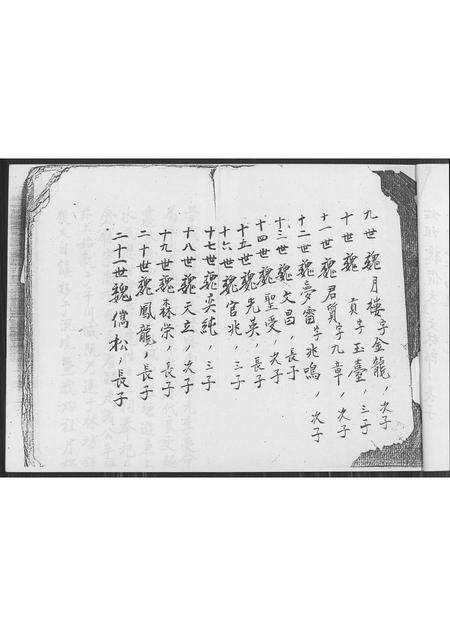 九世魏月樓字金龍,次子
十世魏貢字玉臺,三子
十一世魏君質字九章,次子
十二世魏夢雷字兆鳴,次子
十三世魏文昌,長子
十四世魏聖受,次子
十五世魏先英,長子
十六世魏官兆,三子
十七世魏奕純,三子
十八世魏天立,次子
十九世魏森榮,長子
二十世魏鳳龍,長子
二十一世魏儁松,長子